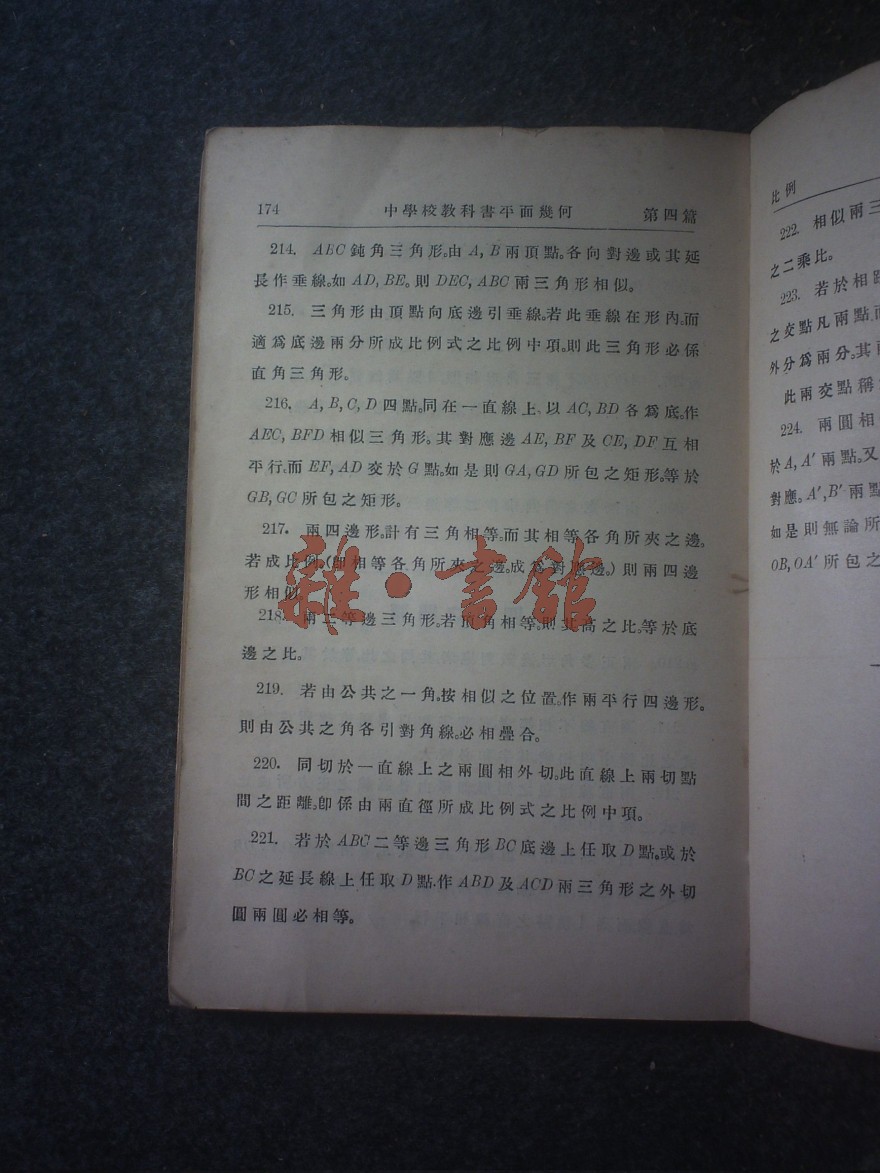 174 中學校教科書平面幾何 第四篇
214. ABC鈍角三角形。由A, B兩頂點。各向對邊或其延
長作垂線。如AD, BE。則DEC, ABC兩三角形相似。
215. 三角形由頂點向底邊引垂線。若此垂線在形內。而
適爲底邊兩分所成比例式之比例中項。則此三角形必係
直角三角形。
216. A, B, C, D四點。同在一直線上、以AC, BD各爲底。作
AEC, BFD相似三角形。其對應邊AE, BF及CE, DF互相
平行。而EF, AD交於G點。如是則GA, GD所包之矩形。等於
GB, GC所包之矩形。
217. 兩四邊形。計有三角相等。而其相等各角所夾之邊。
若成比例。(卽相等各角所夾之邊。成爲對應邊。)則兩四邊
形相似。
218. 兩二等邊三角形。若頂角相等。則其高之比。等於底
邊之比。
219. 若由公共之一角。按相似之位置。作兩平行四邊形。
則由公共之角各引對角線。必相疊合。
220. 同切於一直線上之兩圓相外切。此直線上兩切點
間之距離。卽係由兩直徑所成比例式之比例中項。
221. 若於ABC二等邊三角形BC底邊上任取D點。或於
BC之延長線上任取D點。作ABD及ACD兩三角形之外切
圓兩圓必相等。
雜·書館
比例
222. 相似兩三
之二乘比。
223. 若於相
之交點凡兩點。
外分爲兩分。其
此兩交點稱
224. 兩圓相
於A, A′兩點。又
對應。A′, B′兩點
如是則無論所
OB, OA′所包之